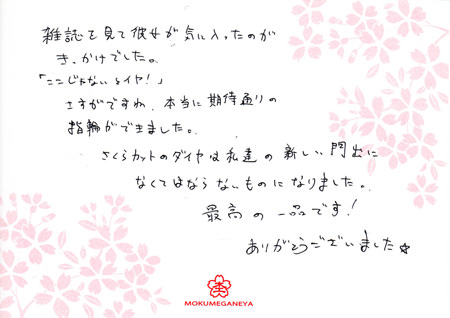 雑誌を見て彼女が気に入ったのが
きっかけでした。
「ここじゃないとイヤ!」
さすがですね、本当に期待通りの
指輪ができました。
さくらカットのダイヤは私達の新しい門出に
なくてはならないものになりました。
最高の一品です!
ありがとうございました☆
MOKUMEGANEYA